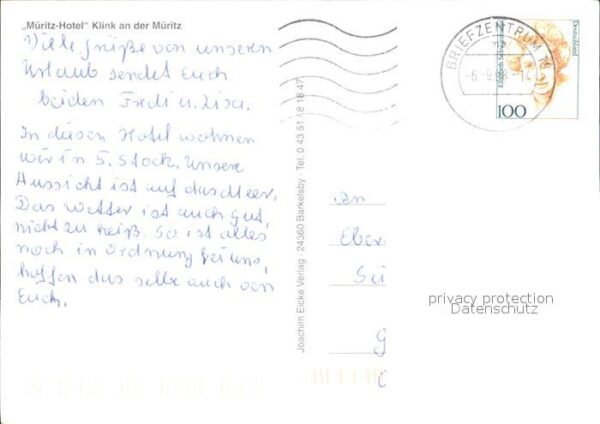 „Müritz-Hotel" Klink an der Müritz
Viele Grüße von unseren
Urlaub sendet Euch
beiden Fredi u. Lisa.
In diesen Hotel wohnen
wir in 5. Stock. Unsere
Aussicht ist auf das Meer.
Das Wetter ist auch gut,
nicht zu heiß. So ist alles
noch in Ordnung bei uns,
hoffen das selbe auch von
Euch.
Joachim Eicke Verlag · 24360 Barkelsby · Tel. 0 43 51 / 8 16 47
BRIEFZENTRUM
Deutschland
100
An
Eber
Sei
G
privacy protection
Datenschutz